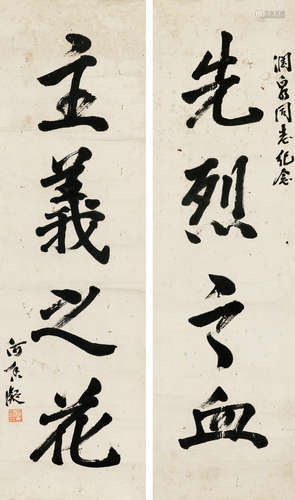 润泉同志纪念
先烈之血
主義之花
何香凝